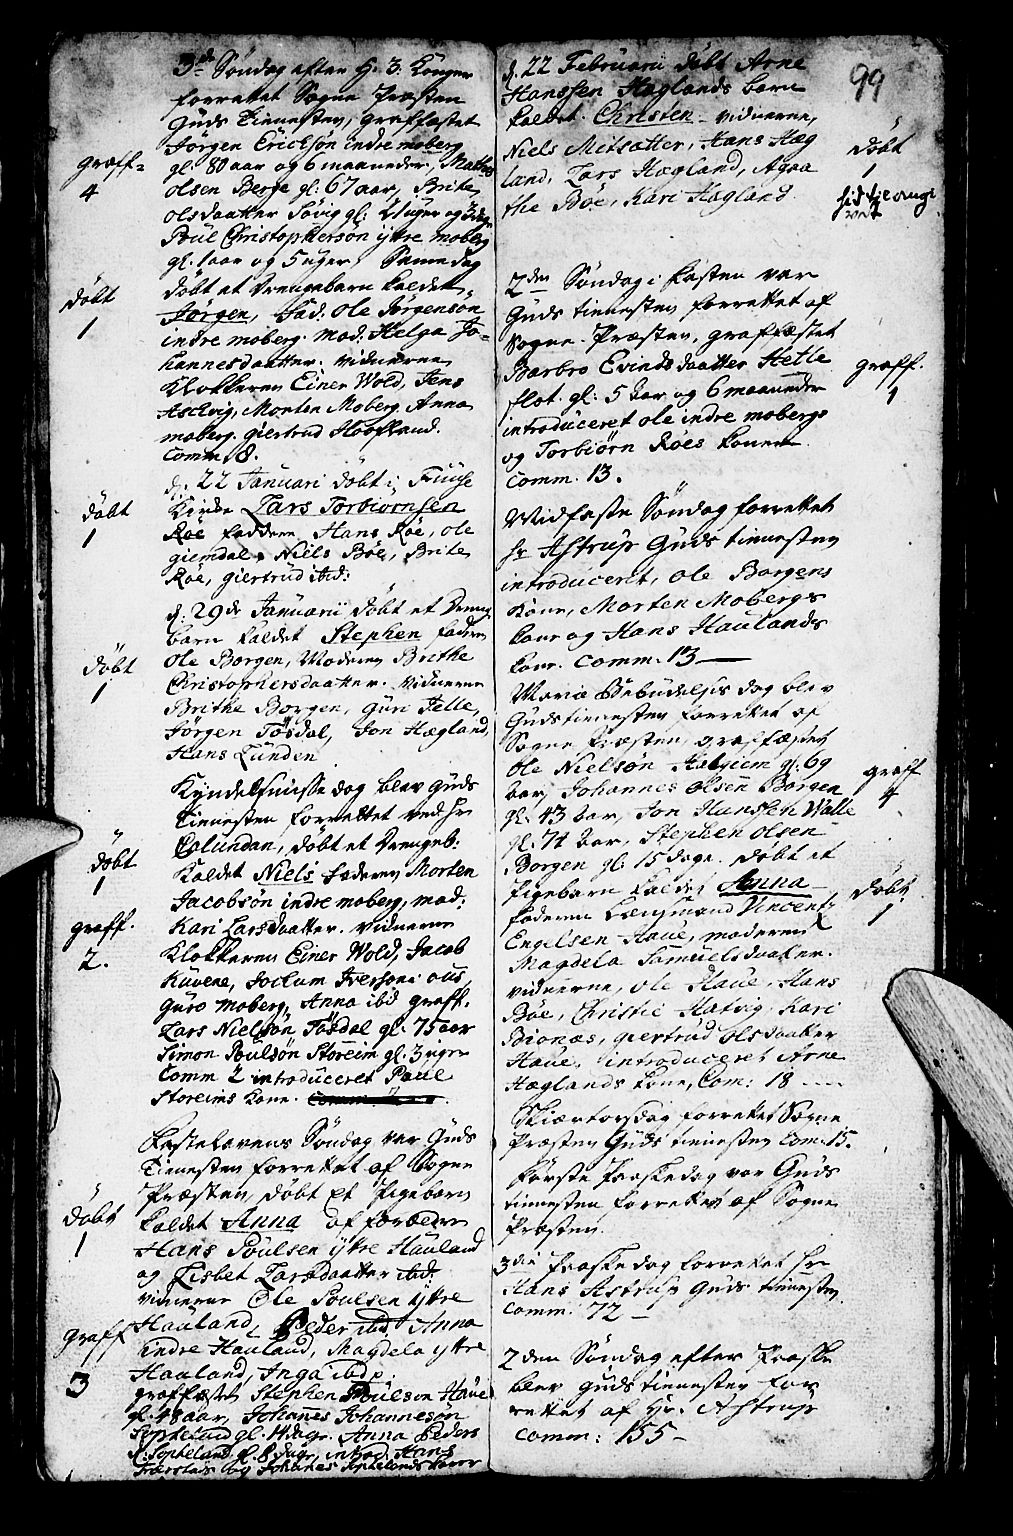 3die Søndag efter H. 3. Konger
forrettet Sogne Præsten
Guds Tienesten, graffæstet
Jørgen Erichsøn indre moberg
graff-
gl. 80 aar og 6 maaneder,
4
olsen Berge gl: 67 aar, Brite
olsdaatter Søvig gl:
Poul Christophersøn ÿtre moberg
gl. 1 aar og 5 uger, Samme dag
døbt
døbt et Drengebarn kaldet
1
Jørgen, Fad. Ole Jørgensøn
indre moberg. mod: Helga Jo-
hannesdaatter. vidnerne
Klokkeren Einer Wold, Jens
Morten Moberg. Anna
moberg. giertrud Hoofland.
Comm. 8.
d. 22 Januari døbt i Fuuse
døbt
Kirke Lars Torbiørnsen
1
Røe faddere Hans Røe, ole
giemdal, Niels Bøe, Brite
Røe, giertrud ibid:
d: 29de Januarii døbt et Drenge
barn kaldet Stephen faderen
døbt
Ole Borgen, Moderen Brithe
1
Christophersdaatter. vidnerne
Brithe Borgen, Guri Telle,
Jørgen Tøsdal, Jon Hægland,
Hans Lunden
Kyndelmisse dag blev Guds
Tienesten forrettet ved Hr
Palundan, døbt et Drengeb:
døbt
Kaldet Niels faderen Morten
1
Jacobsøn indre moberg, mod:
graff.
Kari Larsdaatter. vidnerne
2.
Klokkeren Einer Wold, Jacob
Kuvene, Jockum Iversøn ous
Guro moberg, Anna ibid graff.
Lars Nielsøn Tøsdal gl. 75 aar
Simon Poulsøn Storeim gl. 3 uger
Comm 2 introduceret Paul
Storeims kone.
Fastelavens Søndag var Guds
Tienesten forrettet af Sogne
Præsten, døbt et Pigebarn
døbt
kaldet Anna af forældre
1
Hans Poulsen ÿtre Hauland
og Lisbet Larsdaatter ibid.
vidnerne Ole Poulsen ÿtre
graff
Hauland, Peder ibid Anna
indre Hauland, Magdela ÿtre
3
Hauland, Inga ibid
graffæstet Stephen Poulson Haue
gl. 48 aar, Johannes Johannesøn
Sopheland gl. 14 dage. Anna Peders
D. Sopheland gl. 8 dage, introd. Hans
og Johannes Sophelands koner
99
d. 22 Februarii døbt Arne
Hanssen Hæglands barn
kaldet Christen vidnerne,
døbt
Niels Metsætter, Hans Hæg
1
land, Lars Hægland, Agaa
the Bøe, Kari Hægland
2den Søndag i Fasten var
Guds tienesten forrettet af
Sogne Præsten, graffæstet
graff.
Barbro Evindsdaatter Hetle
1
flot. gl: 5 aar og 6 maaneder
introduceret ole indre mobergs
og Torbiørn Røes koner
Comm. 13.
Midfaste Søndag forrettet
Hr Astrup Guds tienesten
introduceret, ole Borgens
kone, Morten Mobergs
kone og Hans Haulands
kone. Comm. 13
Mariæ Bebudelsis dag blev
Guds tienesten forrettet af
Sogne Præsten, graffæstet
graff
ole Nielsøn gl: 69
4
aar, Johannes olsen Borgen
gl. 43 aar, Jon Hanssen Walle
gl. 74 aar, Stephen olsen
Borgen gl: 15 dage. døbt et
døbt
Pigebarn kaldet Anna
1
faderen Lænsmand Vincent
Engelsen Haue, moderen
Magdela Samuelsdaatter.
vidnerne, ole Haue, Hans
Bøe, Christie Hatvig, Kari
Biønæs, giertrud olsdaatter
Haue, introduceret Arne
Hæglands kone, Com: 18
Skiærtorsdag forrettet Sogne
Præsten Guds tienesten com: 15.
Første Paaskedag var Guds
tienesten forrettet af Sogne
Præsten.
3die Paaskedag forrettet Hr
Hans Astrup Guds tienesten
Comm: 72
2den Søndag efter Paaske
blev Guds tienesten for
rettet af Hr. Astrup
Comm: 155